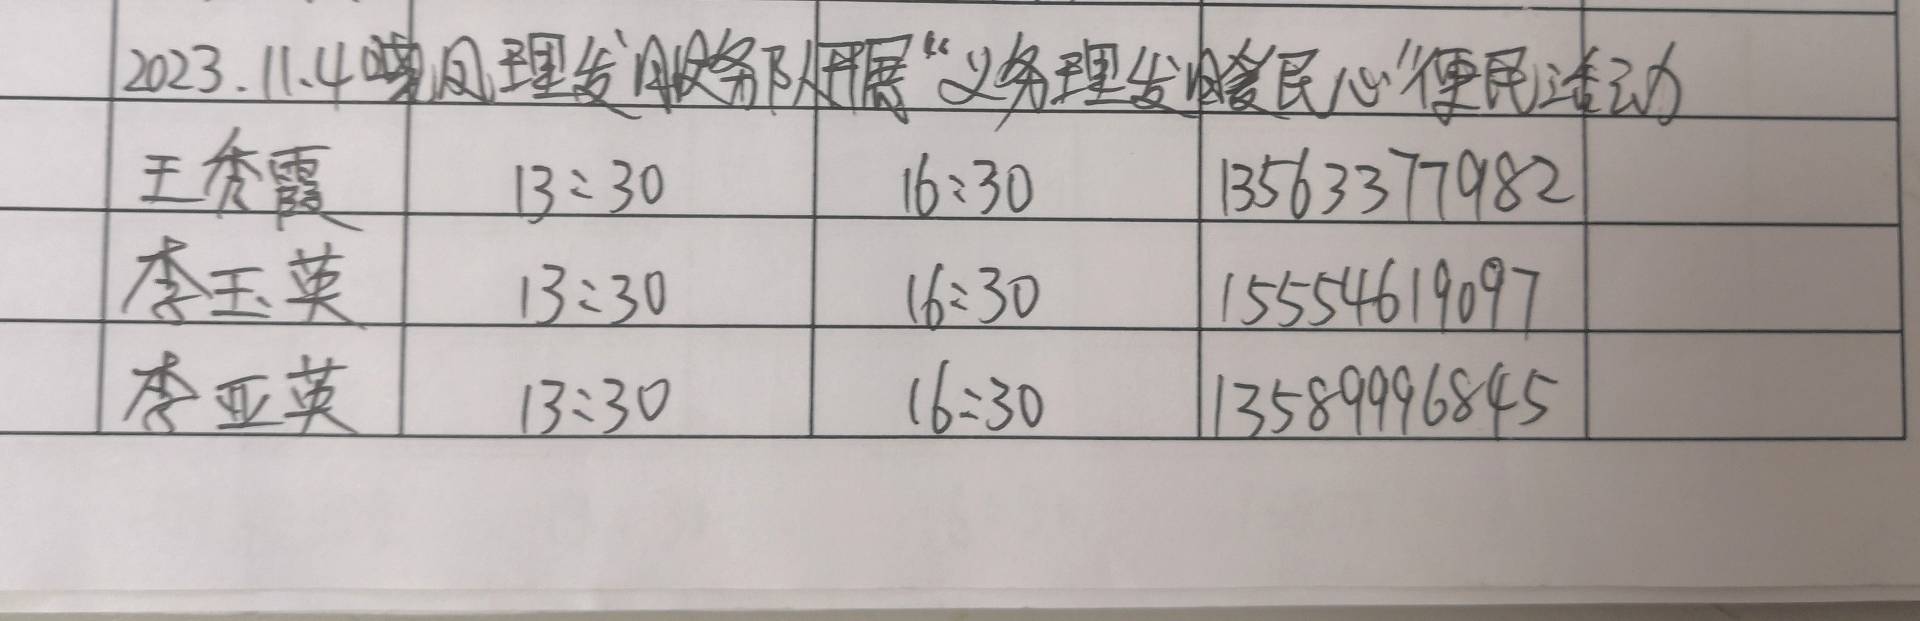 2023.11.4 暖风理发服务队开展“义务理发暖民心”便民活动
王秀霞 13:30 16:30 13563377982
李玉英 13:30 16:30 15554619097
李亚英 13:30 16:30 13589996845